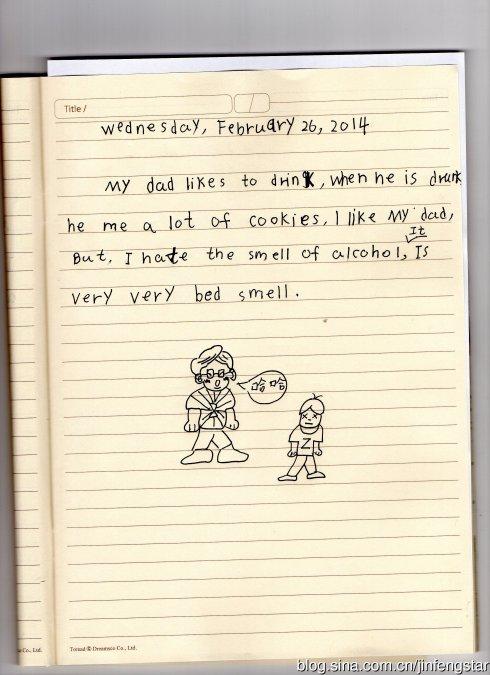 Title /
Wednesday, February 26, 2014
My dad likes to drink, when he is drunk
he me a lot of cookies, I like My dad,
It
But, I hate the smell of alcohol, Is
very very bed smell.
哈哈
Z
Toread © Dreamsco Co., Ltd.
se Co., Ltd.
blog.sina.com.cn/jinfengstar